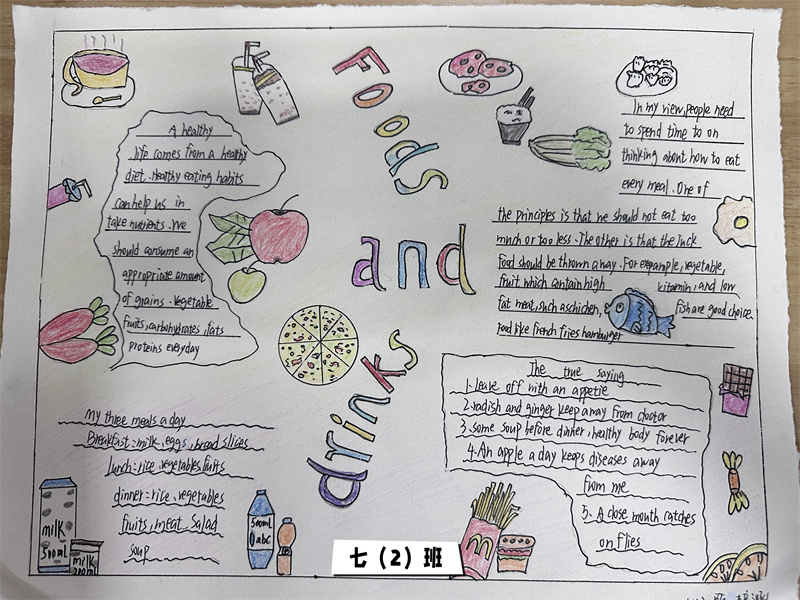 Foods
and
drinks
A healthy
life comes from a healthy
diet. Healthy eating habits
can help us in
take nutrients. We
should consume an
appropriate amount
of grains. Vegetable
fruits, carbohydrates, fats
proteins everyday
In my view, people need
to spend time to on
thinking about how to eat
every meal. One of
the principles is that we should not eat too
much or too less. The other is that the luck
food should be thrown away. For example, vegetable,
fruit which contain high vitamin, and low
fat meat, such as chicken, fish are good choice.
food like french fries hamburger
My three meals a day
Breakfast: milk, eggs, bread slices
lunch: rice vegetables fruits
dinner: rice, vegetables
fruits, meat, Salad
soup
The true saying
1. Leave off with an appetie
2. radish and ginger keep away from doctor
3. some soup before dinner, healthy body forever
4. An apple a day keeps diseases away
from me
5. A close mouth catches
on flies
milk
500mL
milk
500mL
abc
七（2）班